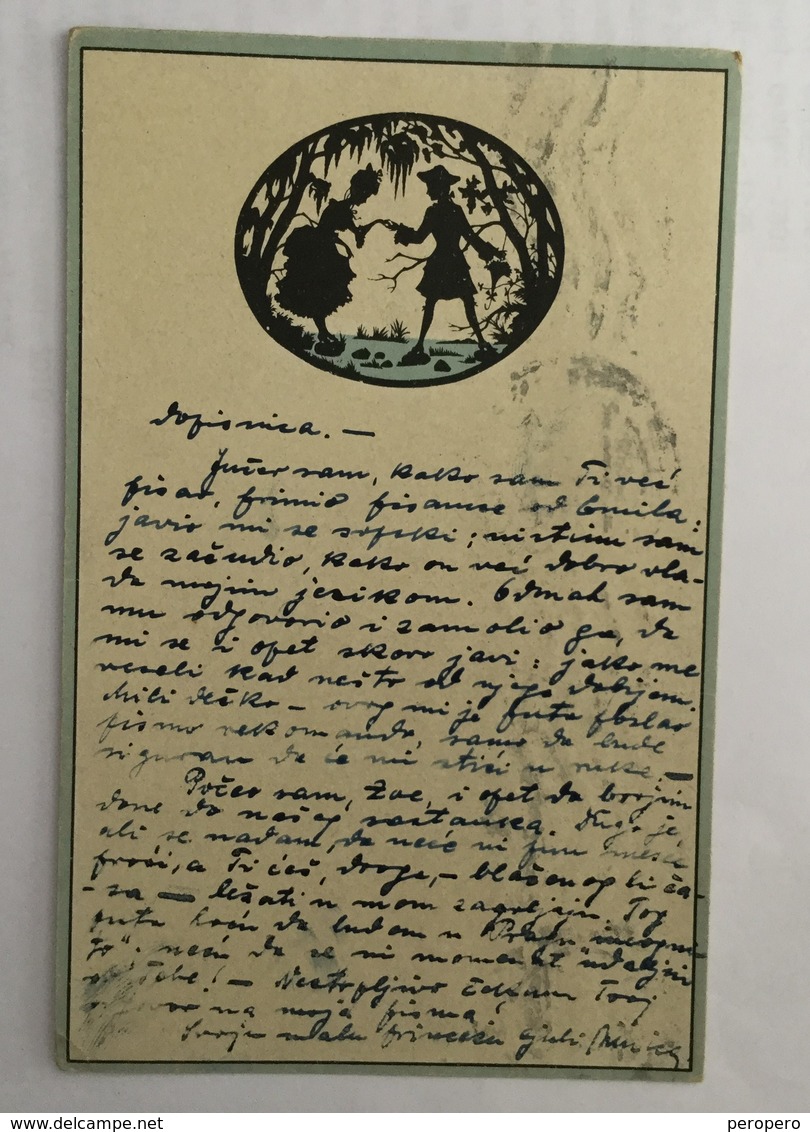 Dopisnica. —
Jučer sam, kako sam Ti već
pisao, primio pisamce od Emila:
javio mi se srpski; uistinu sam
se začudio, kako on već dobro vla-
da mojim jezikom. Odmah sam
mu odgovorio i zamolio ga, da
mi se i opet skoro javi: jako me
veseli kad nešto od njega dobijem.
Mili dečko — ovog mi je puta poslao
pismo rekomando, samo da bude
siguran da će mi stići u ruke. —
Počeo sam, Zoe, i opet da brojim
dane do našeg sastanka. Dugo je
ali se nadam, da neće ni puni mesec
proći, a Ti ćeš, draga, — blaženog li ča-
-sa — ležati u mom zagrljaju. Tog
puta hoću da budem u Pragu „incogni-
to“. neću da se ni momenat udaljim
od Tebe! — Nestrpljivo čekam Tvoj
odgovor na moja pisma!
Svoju malu princesu ljubi
peropero